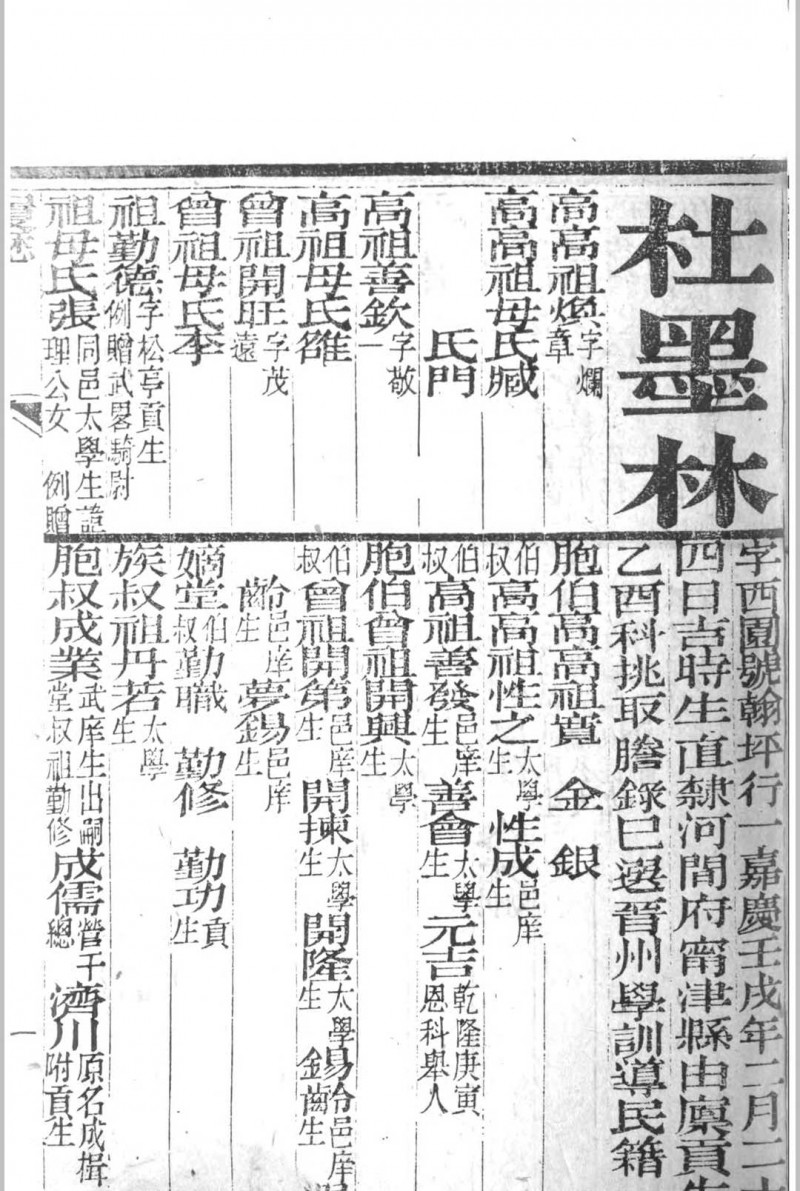 杜墨林
字西園號翰坪行一嘉慶壬戌年二月二
四日吉時生直隸河間府甯津縣由廩貢
乙酉科挑取謄錄已選晉州學訓導民籍
高高祖煥字爛章
高高祖母氏臧
氏門
高祖善欽字敬一
高祖母氏雒
曾祖開旺字茂遠
曾祖母氏李
祖勤德字松亭貢生例贈武畧騎尉
祖母氏張同邑太學生諱理公女 例贈
胞伯高高祖寬 金 銀
伯叔高高祖性之太學生 性成邑庠生
伯叔高祖善發邑庠生 善會太學生 元吉乾隆庚寅恩科舉人
胞伯曾祖開興太學生
伯叔曾祖開第邑庠生 開揀太學生 開隆太學生 錫齡邑庠生
夢錫邑庠生
嫡堂伯叔勤職 勤修 勤功貢生
族叔祖丹若太學生
胞叔成業武庠生出嗣堂叔祖勤修 成儒營千總 濟川原名成楫附貢生
一